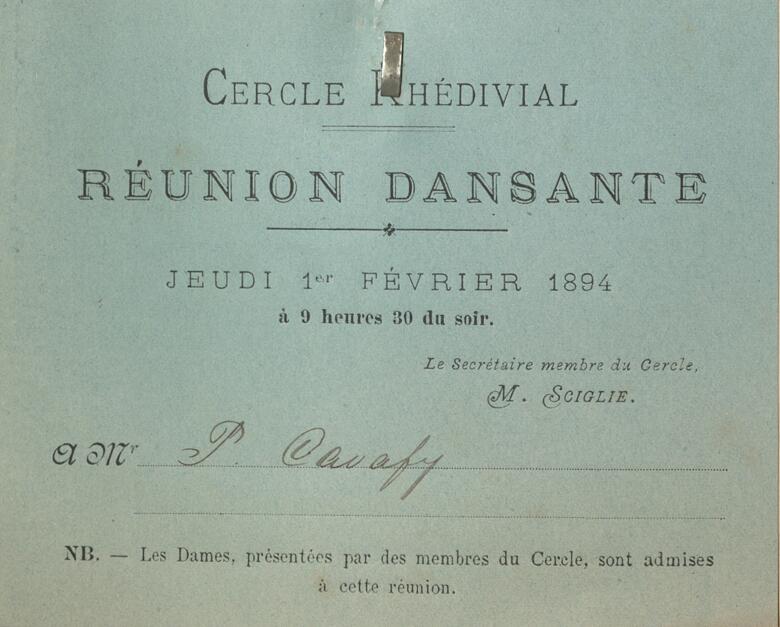 CERCLE KHÉDIVIAL
RÉUNION DANSANTE
JEUDI 1er FÉVRIER 1894
à 9 heures 30 du soir.
Le Secrétaire membre du Cercle,
M. SCIGLIE.
A Mr P. Cavafy
NB. — Les Dames, présentées par des membres du Cercle, sont admises
à cette réunion.